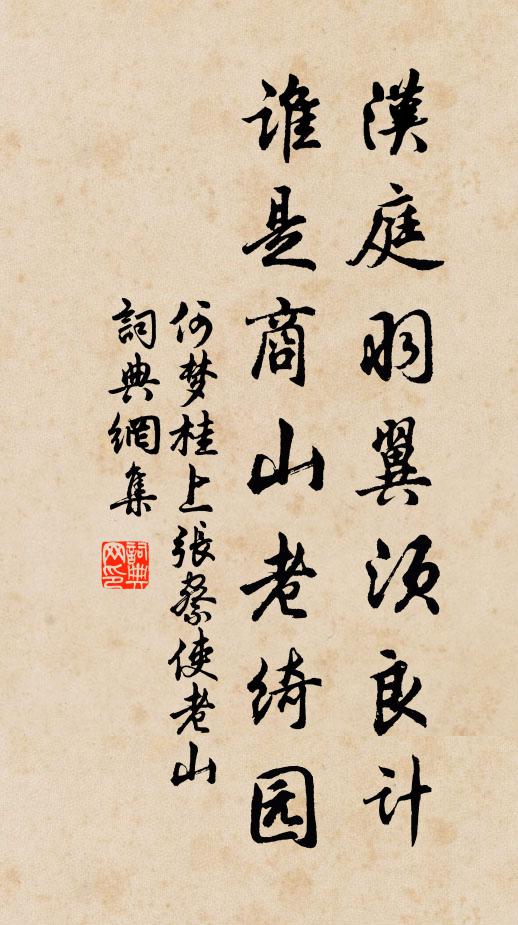 漢庭羽翼須良計
誰是商山老绮园
何梦桂上張察使老山
詞典網集
詞典
网印